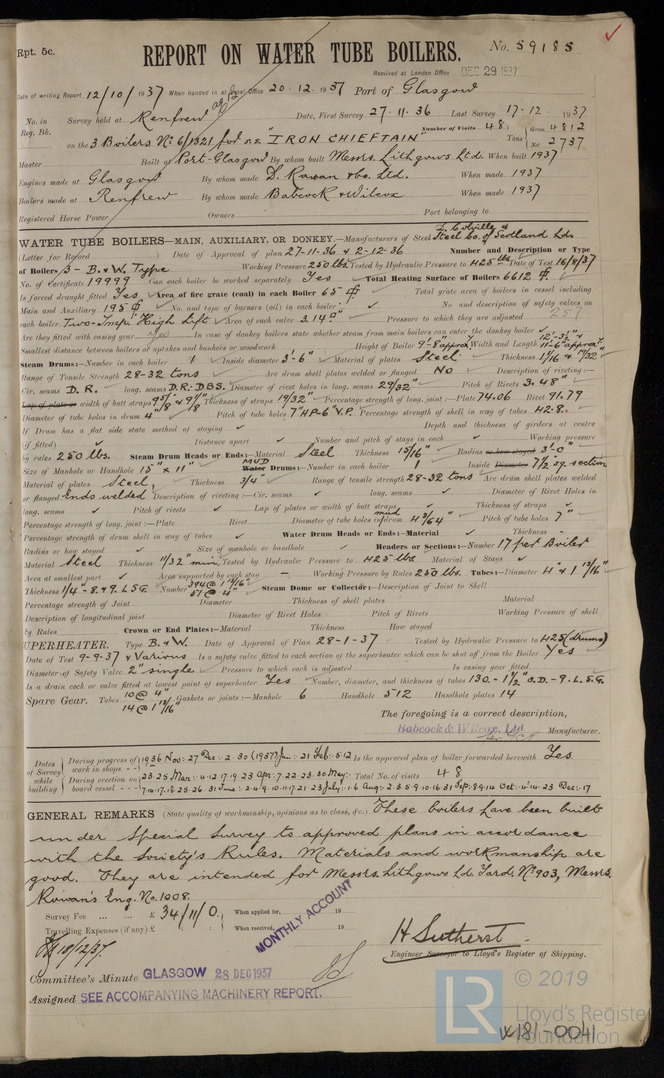 Rpt. 5c.
REPORT ON WATER TUBE BOILERS.
No. 59185
Received at London Office DEC 29 1937
Date of writing Report 12/10/1937 When handed in at Local Office 20.12.1937 Port of Glasgow
No. in Survey held at Renfrew Date, First Survey 27.11.36 Last Survey 17-12-1937
Reg. Bk. Number of Visits 48
on the 3 Boilers No 6/1321 for s.s. "IRON CHIEFTAIN" Tons Gross 4812 Net 2737
Master Built at Port-Glasgow By whom built Messrs Lithgows Ltd. When built 1937
Engines made at Glasgow By whom made D. Rowan & Co. Ltd. When made 1937
Boilers made at Renfrew By whom made Babcock & Wilcox When made 1937
Registered Horse Power Owners Port belonging to
WATER TUBE BOILERS—MAIN, AUXILIARY, OR DONKEY.—Manufacturers of Steel D. Colville & Steel Co. of Scotland Ltd.
(Letter for Record ) Date of Approval of plan 27-11-36 & 2-12-36 Number and Description or Type
of Boilers 3 - B. & W. Type Working Pressure 250 lbs Tested by Hydraulic Pressure to 425 lbs Date of Test 16/9/37
No. of Certificate 19999 Can each boiler be worked separately Yes Total Heating Surface of Boilers 6612
Is forced draught fitted Yes Area of fire grate (coal) in each Boiler 65 Total grate area of boilers in vessel including
Main and Auxiliary 195 No. and type of burners (oil) in each boiler No and description of safety valves on
each boiler Two-Impd High Lift Area of each valve 3.14 Pressure to which they are adjusted 257
Are they fitted with easing gear Yes In case of donkey boilers state whether steam from main boilers can enter the donkey boiler
Smallest distance between boilers or uptakes and bunkers or woodwork Height of Boiler 9'-8" approx Width and Length 12'-3½" & 11'-6" approx.
Steam Drums:—Number in each boiler 1 Inside diameter 3'-6" Material of plates Steel Thickness 1 1/16 & 19/32"
Range of Tensile Strength 28-32 tons Are drum shell plates welded or flanged No Description of riveting:—
Cir. seams D.R. long. seams D.R. DBS. Diameter of rivet holes in long. seams 29/32" Pitch of Rivets 3.48"
Lap of plates or width of butt straps 9 5/8 & 9 1/8" Thickness of straps 19/32 Percentage strength of long. joint:—Plate 74.06 Rivet 91.79
Diameter of tube holes in drum 4" Pitch of tube holes 7" HP-6" V.P. Percentage strength of shell in way of tubes 42.8.
If Drum has a flat side state method of staying Depth and thickness of girders at centre
(if fitted) Distance apart Number and pitch of stays in each Working pressure
by rules 250 lbs. Steam Drum Heads or Ends:—Material Steel Thickness 15/16" Radius or how stayed 3'-0"
Size of Manhole or Handhole 15" x 11" MUD Water Drums:—Number in each boiler 1 Inside Diameter 7½" sq. section
Material of plates Steel, Thickness 3/4" Range of tensile strength 28-32 tons Are drum shell plates welded
or flanged Ends welded Description of riveting:—Cir. seams long. seams Diameter of Rivet Holes in
long. seams Pitch of rivets Lap of plates or width of butt straps Thickness of straps
Percentage strength of long. joint:—Plate Rivet Diameter of tube holes in mud drum 4 3/64" Pitch of tube holes 7"
Percentage strength of drum shell in way of tubes Water Drum Heads or Ends:—Material Thickness
Radius or how stayed Size of manhole or handhole Headers or Sections:—Number 17 per Boiler
Material Steel Thickness 11/32" min. Tested by Hydraulic Pressure to 425 lbs Material of Stays
Area at smallest part Area supported by each stay Working Pressure by Rules 250 lbs. Tubes:—Diameter 4" & 1 13/16"
Thickness 1/4" - 8 & 9. L.S.G. Number 394 @ 1 13/16" 51 @ 4" Steam Dome or Collector:—Description of Joint to Shell
Percentage strength of Joint Diameter Thickness of shell plates Material
Description of longitudinal joint Diameter of Rivet Holes Pitch of Rivets Working Pressure of shell
by Rules Crown or End Plates:—Material Thickness How stayed
UPERHEATER. Type B. & W. Date of Approval of Plan 28-1-37 Tested by Hydraulic Pressure to 425 (drums)
Date of Test 9-9-37 & Various Is a safety valve fitted to each section of the superheater which can be shut off from the Boiler Yes
Diameter of Safety Valve 2" single Pressure to which each is adjusted Is easing gear fitted
Is a drain cock or valve fitted at lowest point of superheater Yes Number, diameter, and thickness of tubes 130 - 1½" O.D. - 9. L.S.G.
Spare Gear. Tubes 10 @ 4" 14 @ 1 13/16" Gaskets or joints:—Manhole 6 Handhole 512 Handhole plates 14
The foregoing is a correct description,
Babcock & Wilcox, Ltd Manufacturer.
Dates of Survey while building
During progress of work in shops 1936 Nov: 27 Dec: 2. 30 (1937) Jan: 21 Feb: 5.12 Is the approved plan of boiler forwarded herewith Yes
During erection on board vessel 23.25 Mar: 4.12.17.19.23 Apr: 7.22.23.30 May: Total No. of visits 48
7.14.17.18.25.26.31 June: 2.4.9.10.11.17.21.23 July: 1.6 Aug: 2.5.8.9.10.16.31 Sep: 8.9.14 Oct: 4.14.23 Dec: 17
GENERAL REMARKS (State quality of workmanship, opinions as to class, &c.) These boilers have been built
under Special Survey to approved plans in accordance
with the Society's Rules. Materials and workmanship are
good. They are intended for Messrs. Lithgows Ld. Yard. No 903, Messrs
Rowan's Eng. No. 1008.
Survey Fee ... ... £ 34/11/0 When applied for, 19
Travelling Expenses (if any) £ : : When received, 19
MONTHLY ACCOUNT
18/12/37.
H Sutherst.
Engineer Surveyor to Lloyd's Register of Shipping.
Committee's Minute GLASGOW 28 DEC 1937
Assigned SEE ACCOMPANYING MACHINERY REPORT.
© 2019
LR Lloyd's Register
Foundation
W181-0041